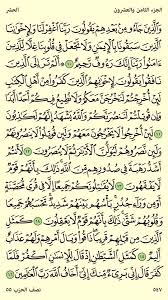 الجزء الثامن والعشرون الحشر
وَٱلَّذِينَ جَآءُو مِنۢ بَعۡدِهِمۡ يَقُولُونَ رَبَّنَا ٱغۡفِرۡ لَنَا وَلِإِخۡوَٰنِنَا
ٱلَّذِينَ سَبَقُونَا بِٱلۡإِيمَٰنِ وَلَا تَجۡعَلۡ فِي قُلُوبِنَا غِلّٗا لِّلَّذِينَ
ءَامَنُواْ رَبَّنَآ إِنَّكَ رَءُوفٞ رَّحِيمٌ ١٠ ۞ أَلَمۡ تَرَ إِلَى ٱلَّذِينَ
نَافَقُواْ يَقُولُونَ لِإِخۡوَٰنِهِمُ ٱلَّذِينَ كَفَرُواْ مِنۡ أَهۡلِ ٱلۡكِتَٰبِ
لَئِنۡ أُخۡرِجۡتُمۡ لَنَخۡرُجَنَّ مَعَكُمۡ وَلَا نُطِيعُ فِيكُمۡ أَحَدًا أَبَدٗا
وَإِن قُوتِلۡتُمۡ لَنَنصُرَنَّكُمۡ وَٱللَّهُ يَشۡهَدُ إِنَّهُمۡ لَكَٰذِبُونَ ١١
لَئِنۡ أُخۡرِجُواْ لَا يَخۡرُجُونَ مَعَهُمۡ وَلَئِن قُوتِلُواْ لَا يَنصُرُونَهُمۡ
وَلَئِن نَّصَرُوهُمۡ لَيُوَلُّنَّ ٱلۡأَدۡبَٰرَ ثُمَّ لَا يُنصَرُونَ ١٢ لَأَنتُمۡ
أَشَدُّ رَهۡبَةٗ فِي صُدُورِهِم مِّنَ ٱللَّهِۚ ذَٰلِكَ بِأَنَّهُمۡ قَوۡمٞ
لَّا يَفۡقَهُونَ ١٣ لَا يُقَٰتِلُونَكُمۡ جَمِيعًا إِلَّا فِي قُرٗى مُّحَصَّنَةٍ
أَوۡ مِن وَرَآءِ جُدُرِۭۚ بَأۡسُهُم بَيۡنَهُمۡ شَدِيدٞۚ تَحۡسَبُهُمۡ جَمِيعٗا
وَقُلُوبُهُمۡ شَتَّىٰۚ ذَٰلِكَ بِأَنَّهُمۡ قَوۡمٞ لَّا يَعۡقِلُونَ ١٤ كَمَثَلِ
ٱلَّذِينَ مِن قَبۡلِهِمۡ قَرِيبٗاۖ ذَاقُواْ وَبَالَ أَمۡرِهِمۡ وَلَهُمۡ عَذَابٌ
أَلِيمٞ ١٥ كَمَثَلِ ٱلشَّيۡطَٰنِ إِذۡ قَالَ لِلۡإِنسَٰنِ ٱكۡفُرۡ فَلَمَّا
كَفَرَ قَالَ إِنِّي بَرِيٓءٞ مِّنكَ إِنِّيٓ أَخَافُ ٱللَّهَ رَبَّ ٱلۡعَٰلَمِينَ ١٦
٥٤٧ نصف الحزب ٥٥